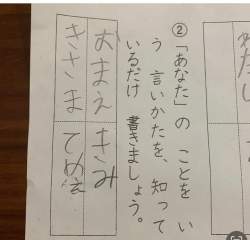 ②「あなた」の ことを い
う 言いかたを、知って
いるだけ 書きましょう。
おまえ きみ
きさま てめえ